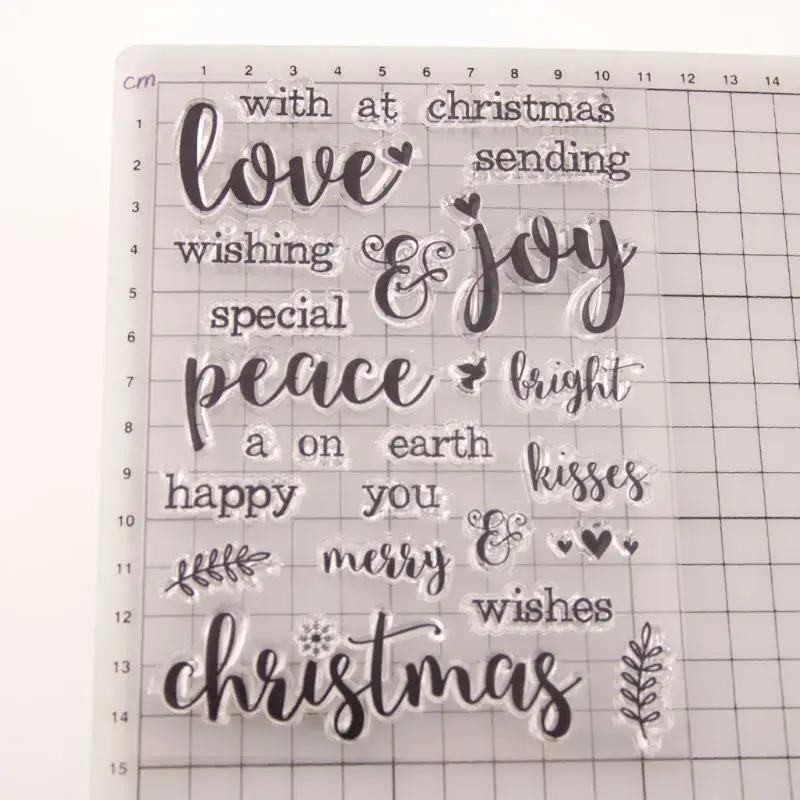 cm
1 2 3 4 5 6 7 8 9 10 11 12 13 14
with at christmas
1
love
sending
2
3
wishing & joy
4
5
special
6
peace bright
7
8
a on earth
9
kisses
happy you
10
&
merry
11
wishes
12
christmas
13
14
15